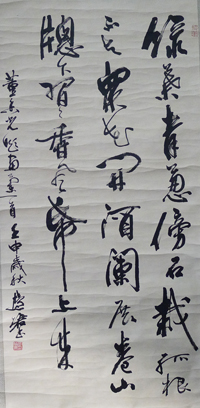 綠葉青蔥傍石栽孤根
不与眾花開酒闌展卷山
牕下習習香從帋上来
董其昌題畫蘭一首 壬申歲秋